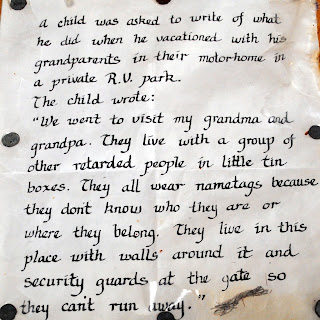 a child was asked to write of what
he did when he vacationed with his
grandparents in their motorhome in
a private R.V. park.
The child wrote:
"We went to visit my grandma and
grandpa. They live with a group of
other retarded people in little tin
boxes. They all wear nametags because
they don't know who they are or
where they belong. They live in this
place with walls around it and
security guards at the gate so
they can't run away."